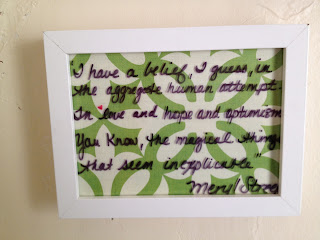 "I have a belief, I guess, in
the aggregate human attempt.
In love and hope and optimism
You Know, the magical things
that seem inexplicable"
Meryl Streep